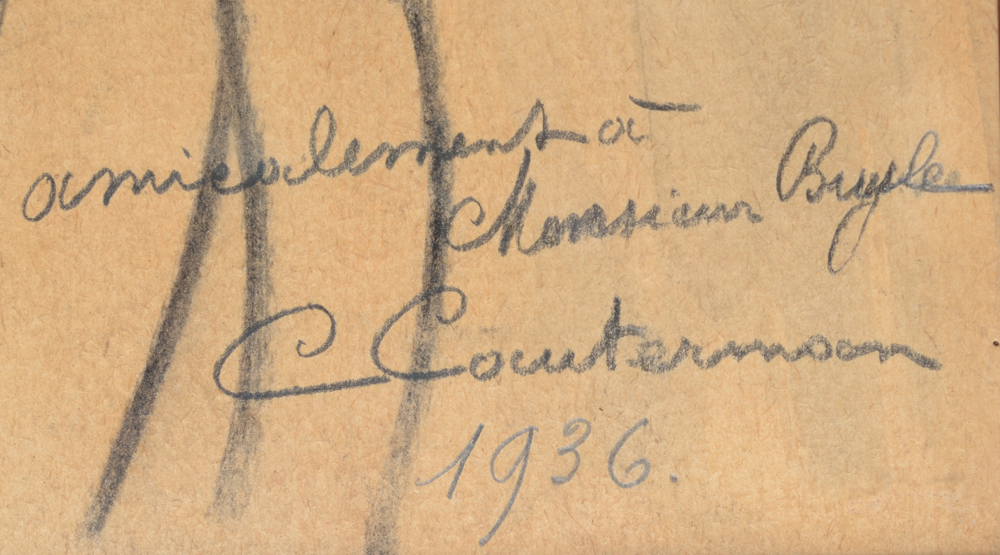 amicalement à
Monsieur Buyle
C Coutermoon
1936.